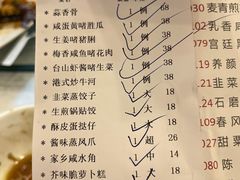 *蒜香骨 1 例 38
*咸蛋黄啫胜瓜 1 例 38
*生姜啫猪脷 1 例 58
*梅香咸鱼啫花肉 1 例 68
*台山虾酱啫生菜 1 例 38
*港式炒牛河 1 例 38
*韭菜蒸饺子 1 大 18
*生煎锅贴饺 1 大 18
*酥皮蛋挞仔 1 超 26
*酱味蒸凤爪 1 超 26
*家乡咸水角 1 中 14
*芥味脆萝卜糕 1 大 18
030 麦青煎
D02 乳香
079 宫廷
养颜
韭菜
石磨
春风
080 陈